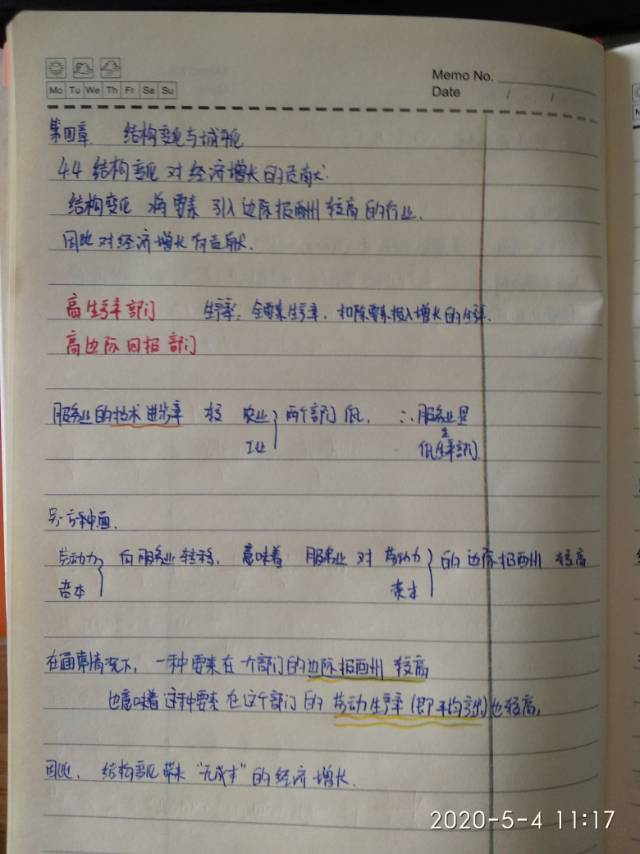 Memo No.
Mo Tu We Th Fr Sa Su
Date / /
第四章 结构变化与城市化
4.4 结构变化对经济增长的贡献
结构变化 将要素 引入边际报酬较高的行业,
因此对经济增长有贡献.
高生产率部门 生产率: 全要素生产率, 扣除要素投入增长的
高边际回报部门
服务业的技术进步率 较 农业 两个部门低, ∴服务业是
工业 低生产率部门
另一方面,
劳动力 向服务业转移, 意味着 服务业 对 劳动力 的边际报酬 较高
资本 资本
在通常情况下, 一种要素在一个部门的边际报酬 较高
也意味着这种要素在这个部门的劳动生产率(即平均产出)也较高,
因此, 结构变化带来 "无成本" 的经济增长.
2020-5-4 11:17